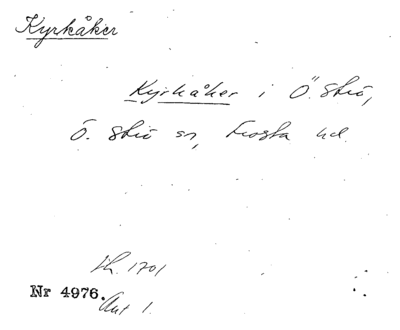 Kyrkåker
Kyrkåker i Ö. Strö,
Ö. Strö sn, Frosta hd.
1701
Nr 4976.
Akt 1.